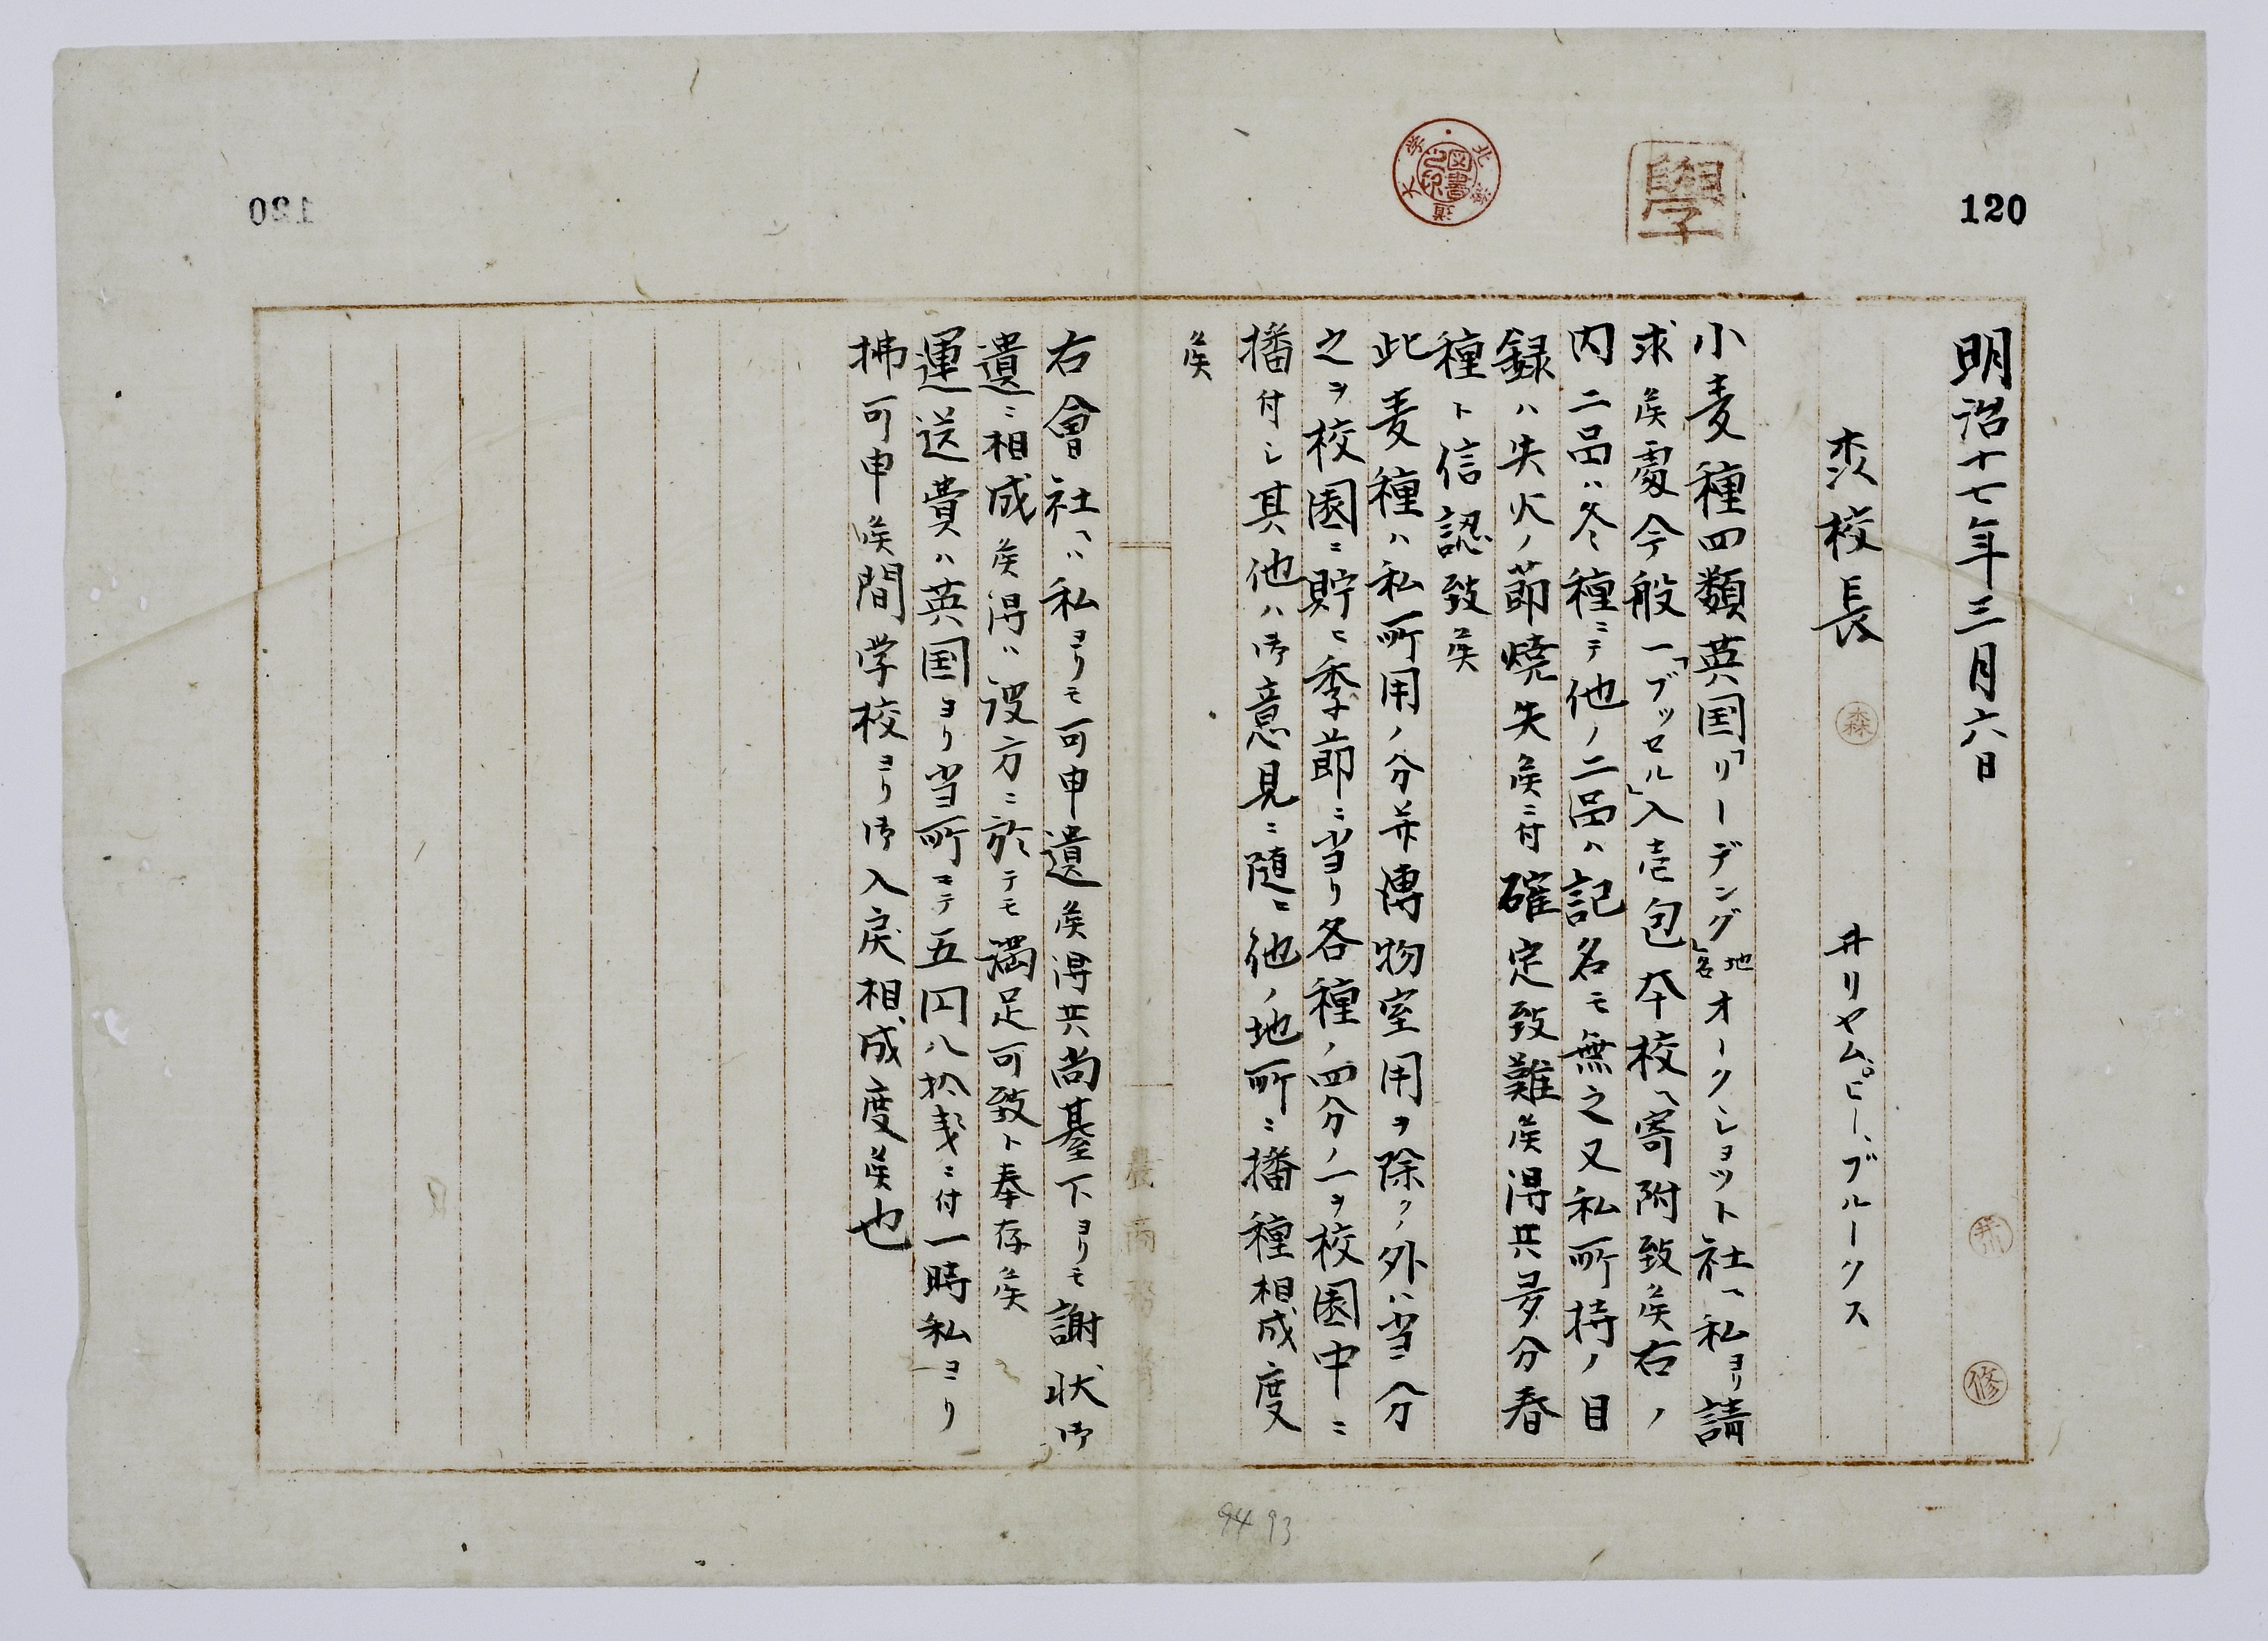 120
學
北海道大学図書之印
明治十七年三月六日
森校長
森
井リヤム、ピー、ブルークス
修
小麦種四類英国「リーデング」地名オークショット社ヘ私ヨリ請
求候處今般一「ブッセル」入壱包本校ヘ寄附致候右ノ
内二品ハ冬種ニテ他ノ二品ハ記名モ無之又私所持ノ目
録ハ失火ノ節焼失候ニ付確定致難候得共多分春
種ト信認致候
此麦種ハ私所用ノ分并博物室用ヲ除クノ外ハ当ニ分
之ヲ校園ニ貯ヒ季節ニ当リ各種ノ四分ノ一ヲ校園中ニ
播付シ其他ハ御意見ニ随ヒ他ノ地所ニ播種相成度
候
農商務省
右會社ヘハ私ヨリモ可申遺候得共尚基下ヨリモ謝状御
遺ニ相成候得ハ彼方ニ於テモ満足可致ト奉存候
運送費ハ英国ヨリ当所マテ五円八拾銭ニ付一時私ヨリ
拂可申候間学校ヨリ御入戻相成度候也
94 93